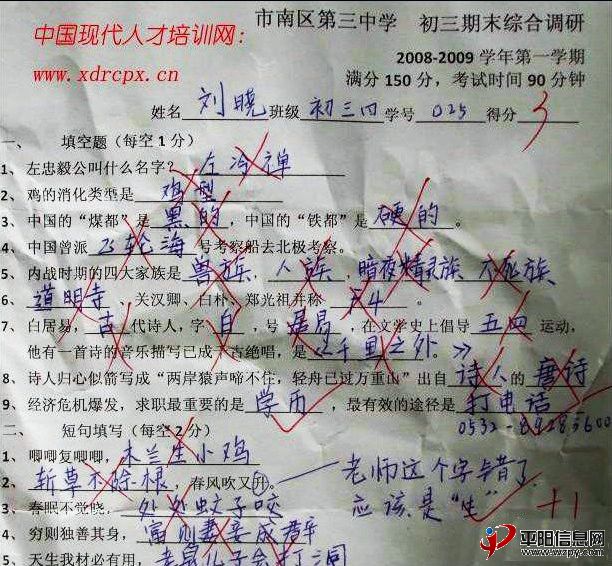 市南区第三中学 初三期末综合调研
中国现代人才培训网：
www.xdrcpx.cn
2008-2009 学年第一学期
满分 150 分，考试时间 90 分钟
姓名 刘晓 班级 初三四 学号 025 得分 3
一、 填空题（每空 1 分）
1、左忠毅公叫什么名字？ 左冷禅
2、鸡的消化类型是 鸡型
3、中国的“煤都”是 黑的 ，中国的“铁都”是 硬的 。
4、中国曾派 飞轮海 号考察船去北极考察。
5、内战时期的四大家族是 兽族 ， 人族 ，暗夜精灵族 不死族
6、 道明寺 、关汉卿、白朴、郑光祖并称 F4 。
7、白居易， 古 代诗人，字 自 ，号 居易 ，在文学史上倡导 五四 运动，
他有一首诗的音乐描写已成千古绝唱，是 《千里之外。》
8、诗人归心似箭写成“两岸猿声啼不住，轻舟已过万重山”出自 诗人 的 唐诗
9、经济危机爆发，求职最重要的是 学而 ，最有效的途径是 打电话
0532-
二、 短句填写（每空 2 分）
1、唧唧复唧唧，木兰生小鸡
2、斩草不除根，春风吹又升。 老师这个字错了
应该是“生” +1
3、春眠不觉晓， 处处蚊子咬
4、穷则独善其身， 富则妻妾成群
5、天生我材必有用，老鼠儿子会打洞
平阳信息网
www.wzpy.com